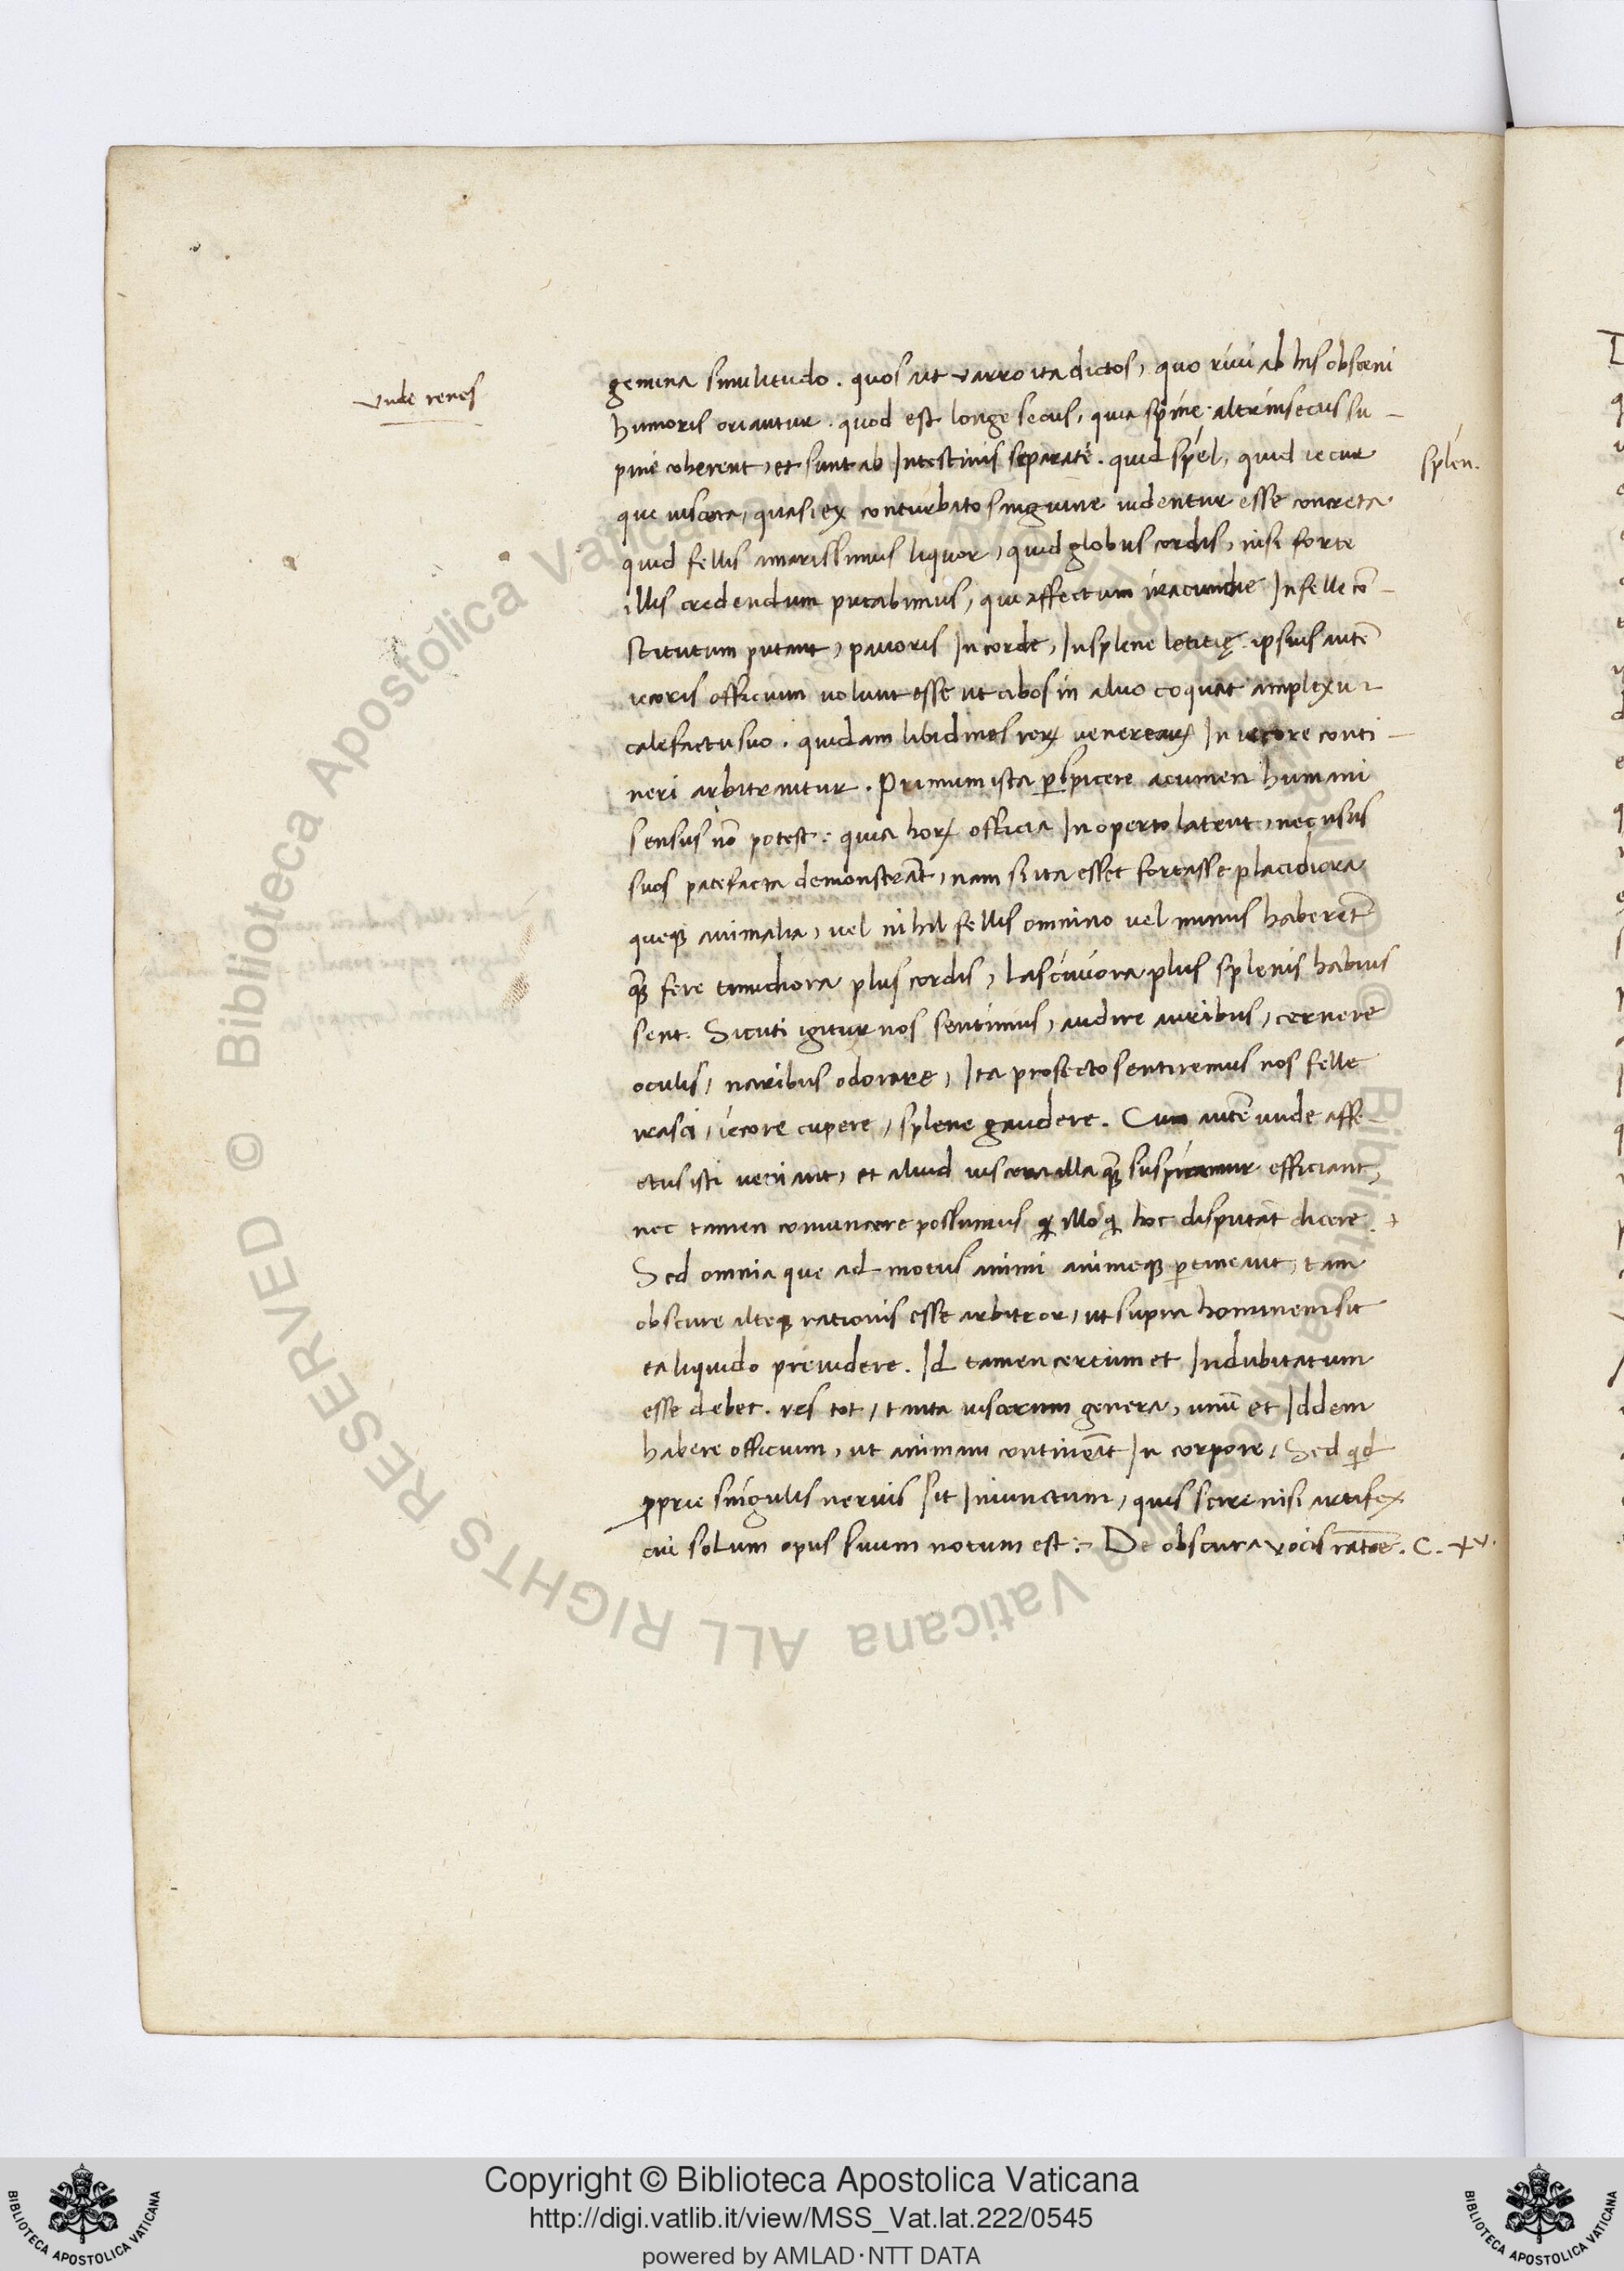 Vnde renes
gemina similitudo . quos ait varro ita dictos, quo riui ab his obsceni
humoris oriantur . quod est longe secus, quia spine altrinsecus su-
pine coherent, et sunt ab Intestinis separate . quid spel, quid iecur
splen.
que uiscera, quasi ex conturbato sanguine uidentur esse concreta
quid fellis amarissimus liquor, quid globus cordis, nisi forte
illis credendum putabimus, qui affectum iracundie In felle cō-
stitutum putant, pauoris In corde, In splene letitię . ipsius autē
iecoris officium uolunt esse ut cibos in aluo coquat amplexu 2
calefactu suo . quidam libidines reꝝ venereaꝝ In iecore conti-
neri arbitrantur . Primum ista ꝑspicere acumen humani
sensus nō potest : quia hoꝝ officia In operto latent, nec usus
suos patefacta demonstrāt, nam si ita esset fortasse placidiora
queqꝫ animalia, vel nihil fellis omnino vel minus haberēt
qꝫ fere timidiora plus cordis, lasciuiora plus splenis habuis
sent . Sicuti igitur nos sentimus, audire auribus, cernere
oculis, naribus odorare, Ita profecto sentiremus nos felle
irasci, iecore cupere, splene gaudere . Cum autē unde affe-
ctus isti veniant, et aliud uiscera illa qꝫ suspicamur efficiant,
nec tamen conuincere possumus illos hoc disputāt dicere
Sed omnia que ad motus animi animeqꝫ ꝑtineant, tam
obscure alteqꝫ rationis esse arbitror, ut supra hominem sit
ea liquido preuidere . Id tamen certum et Indubitatum
esse debet . res tot, tanta uiscerum genera, unū et Iddem
habere officium, ut animam contineāt In corpore, Sed qd
ꝓprie singulis neruis sit Iniunctum, quis scire nisi artifex
cui solum opus suum notum est :- De obscura vocis ratōe . C . xv.
Copyright © Biblioteca Apostolica Vaticana
http://digi.vatlib.it/view/MSS_Vat.lat.222/0545
powered by AMLAD·NTT DATA
BIBLIOTECA APOSTOLICA VATICANA
BIBLIOTECA APOSTOLICA VATICANA
© Biblioteca Apostolica Vaticana ALL RIGHTS RESERVED
© Biblioteca Apostolica Vaticana ALL RIGHTS RESERVED